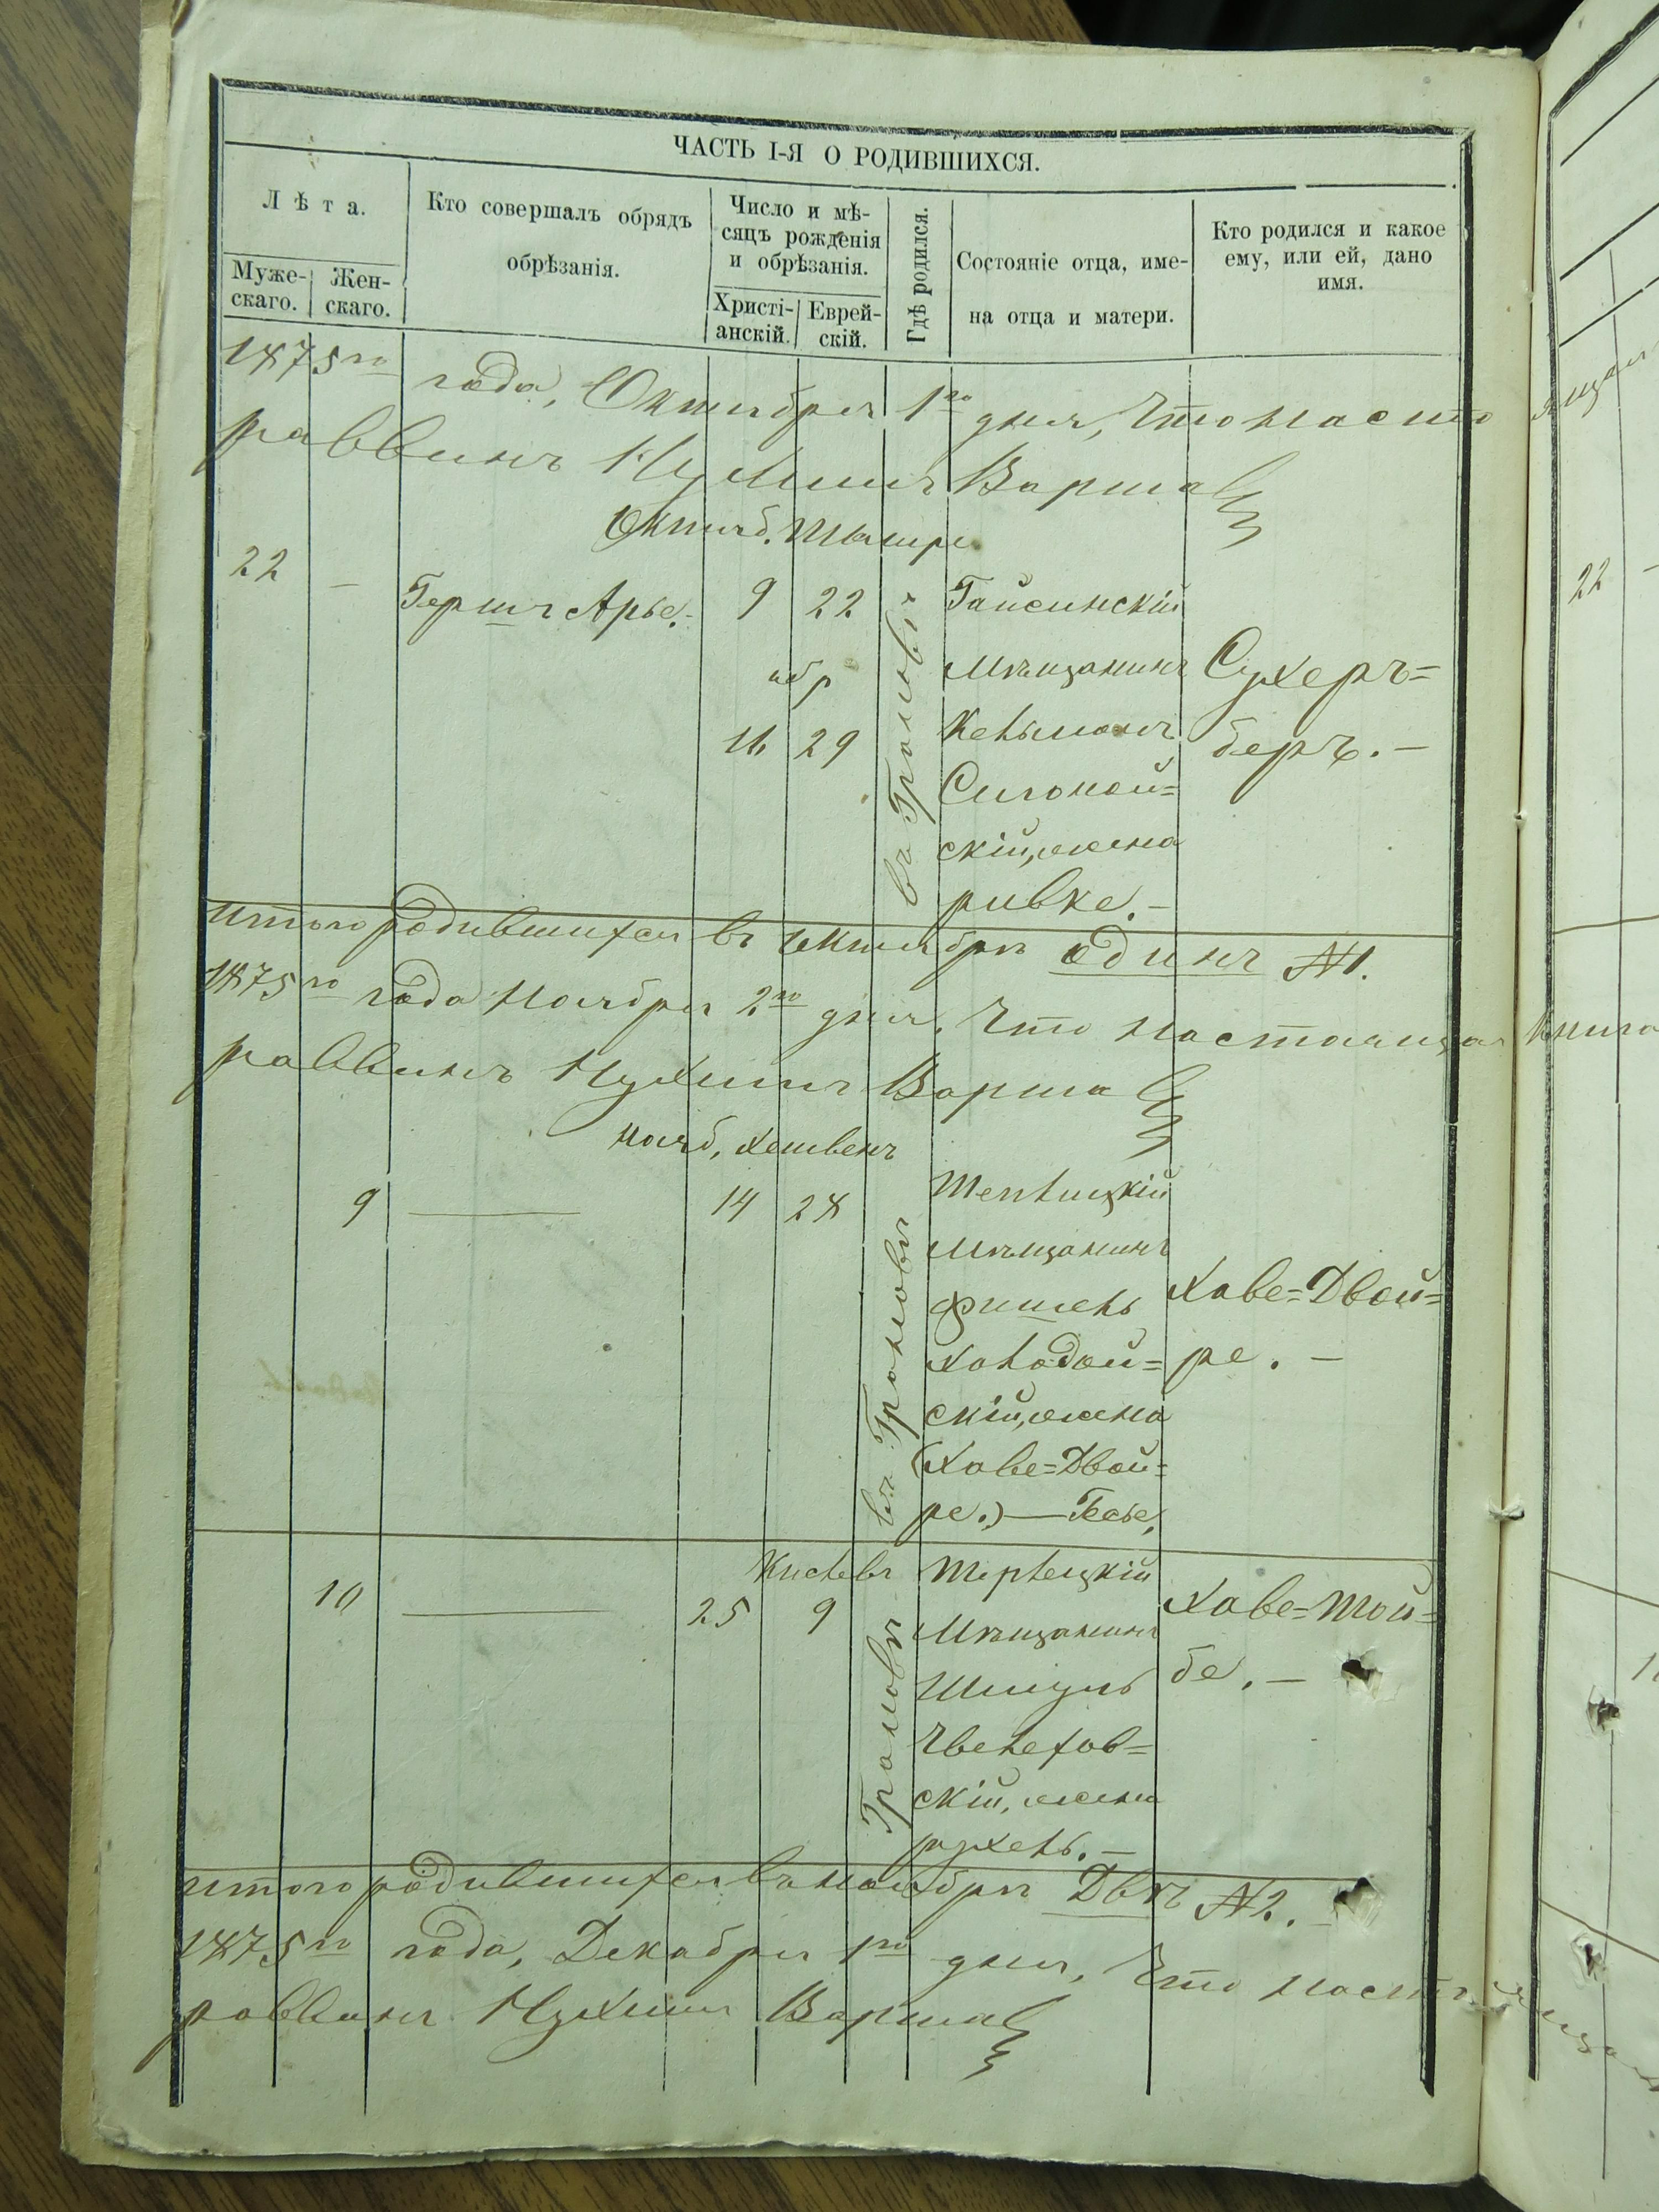 ЧАСТЬ I-Я О РОДИВШИХСЯ.
Лѣта.
Муже-
скаго.
Жен-
скаго.
Кто совершалъ обрядъ
обрѣзанія.
Число и мѣ-
сяцъ рожденія
и обрѣзанія.
Христі-
анскій.
Еврей-
скій.
Гдѣ родился.
Состояніе отца, име-
на отца и матери.
Кто родился и какое
ему, или ей, дано
имя.
1875го года, Октября 1го дня, Что насто
раввинъ Нухимъ Варшав
Октяб. Тишре
22 — Гершъ Арье. 9 22
обр
16 29
въ Грановѣ
Гайсинскій
мѣщанинъ
Кельманъ
скій, жена
ривке. —
Сухеръ=
беръ. —
итого родившихся въ октябрѣ одинъ №1.
1875го года Ноября 2го дня, Что настоящая книга
раввинъ Нухимъ Варшав
нояб, хешвенъ
9 — 14 28
въ Грановѣ
мѣщанинъ
Фишель
Холодой=
скій, жена
(Хаве=Двой=
ре.) —
Хаве=Двой=
ре. —
Кислевъ
10 — 25 9
Грановѣ
мѣщанинъ
Шмуль
скій, жена
рухель. —
Хаве=Той=
бе. —
итого родившихся въ ноябрѣ Двѣ №2. —
1875го года, Декабря 1го дня, Что настоя
раввинъ Нухимъ Варшав
22 —